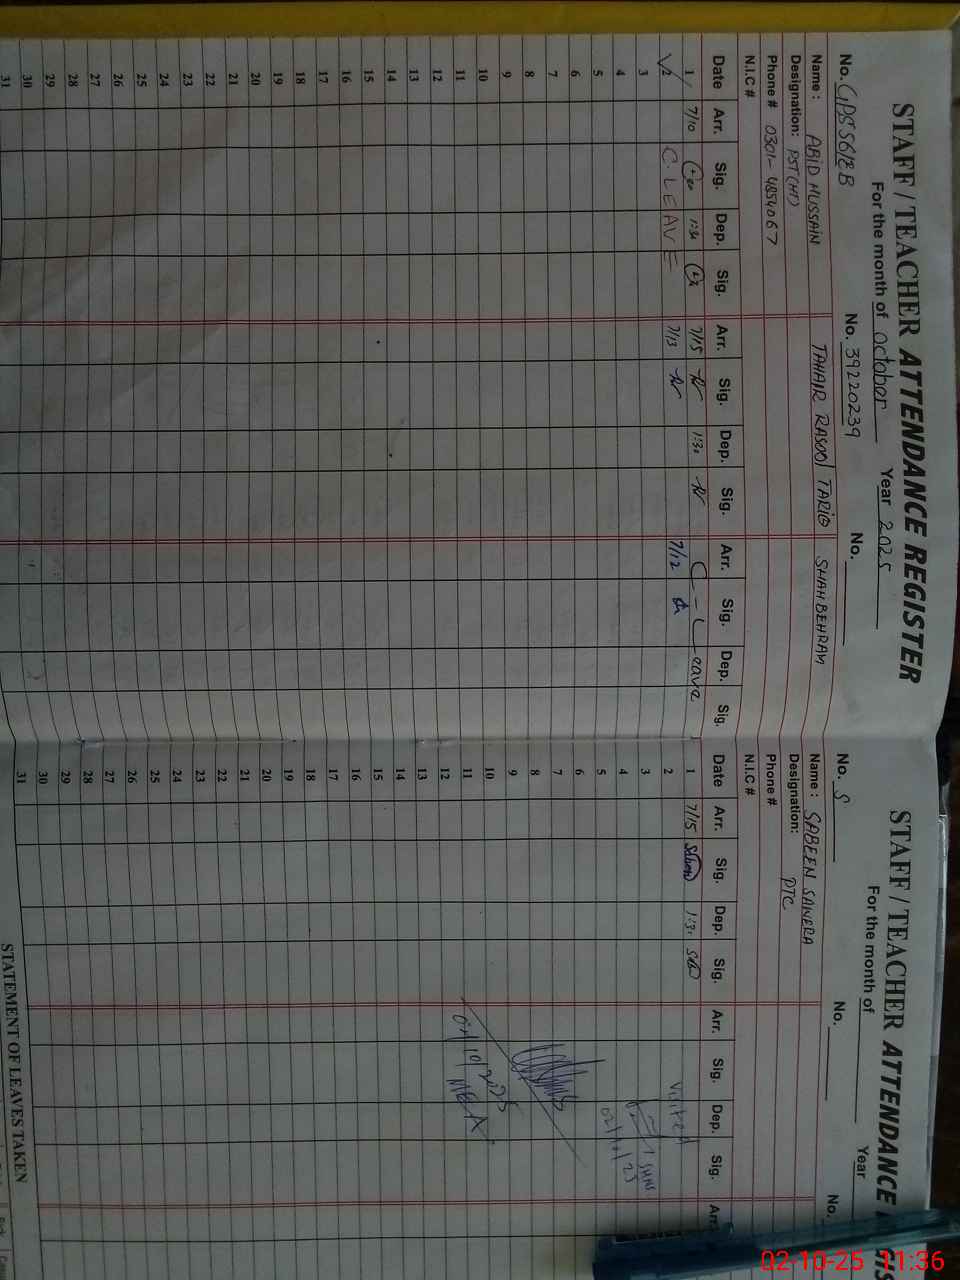 STAFF / TEACHER ATTENDANCE REGISTER
For the month of October Year 2025
No. GPS 56/EB No. 39220239 No.
Name : ABID HUSSAIN TAHAIR RASOOL TARIQ SHAH BEHRAM
Designation: PST (HT)
Phone # 0301-4854067
N.I.C #
Date Arr. Sig. Dep. Sig. Arr. Sig. Dep. Sig. Arr. Sig. Dep. Sig.
1 7/10 1:30 7/15 1:30 C-Leave
2 C.LEAVE 7/13 7/12
3
4
5
6
7
8
9
10
11
12
13
14
15
16
17
18
19
20
21
22
23
24
25
26
27
28
29
30
31
STAFF / TEACHER ATTENDANCE
For the month of Year
No. S No. No.
Name : SABEEN SAWERA
Designation: PTC
Phone #
N.I.C #
Date Arr. Sig. Dep. Sig. Arr. Sig. Dep. Sig. Arr.
1 7/15 1:30
2 Visited
3
4 02/10/25
5
6
7
8
9
10
11 02/10/2025
12 MEA
13
14
15
16
17
18
19
20
21
22
23
24
25
26
27
28
29
30
31
STATEMENT OF LEAVES TAKEN
02-10-25 11:36